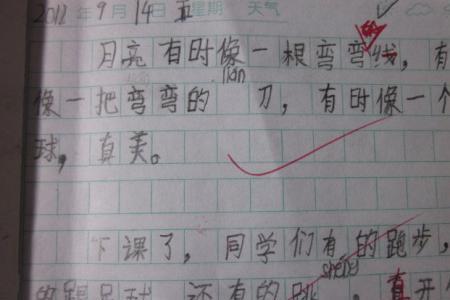 2012年9月14日 五星期 天气
的
月亮有时像一根弯弯线，有
像一把弯弯的 lian 刀，有时像一个
球，真美。
下课了，同学们有的跑步，
的踢足球 还有的跳 sheng ，真开